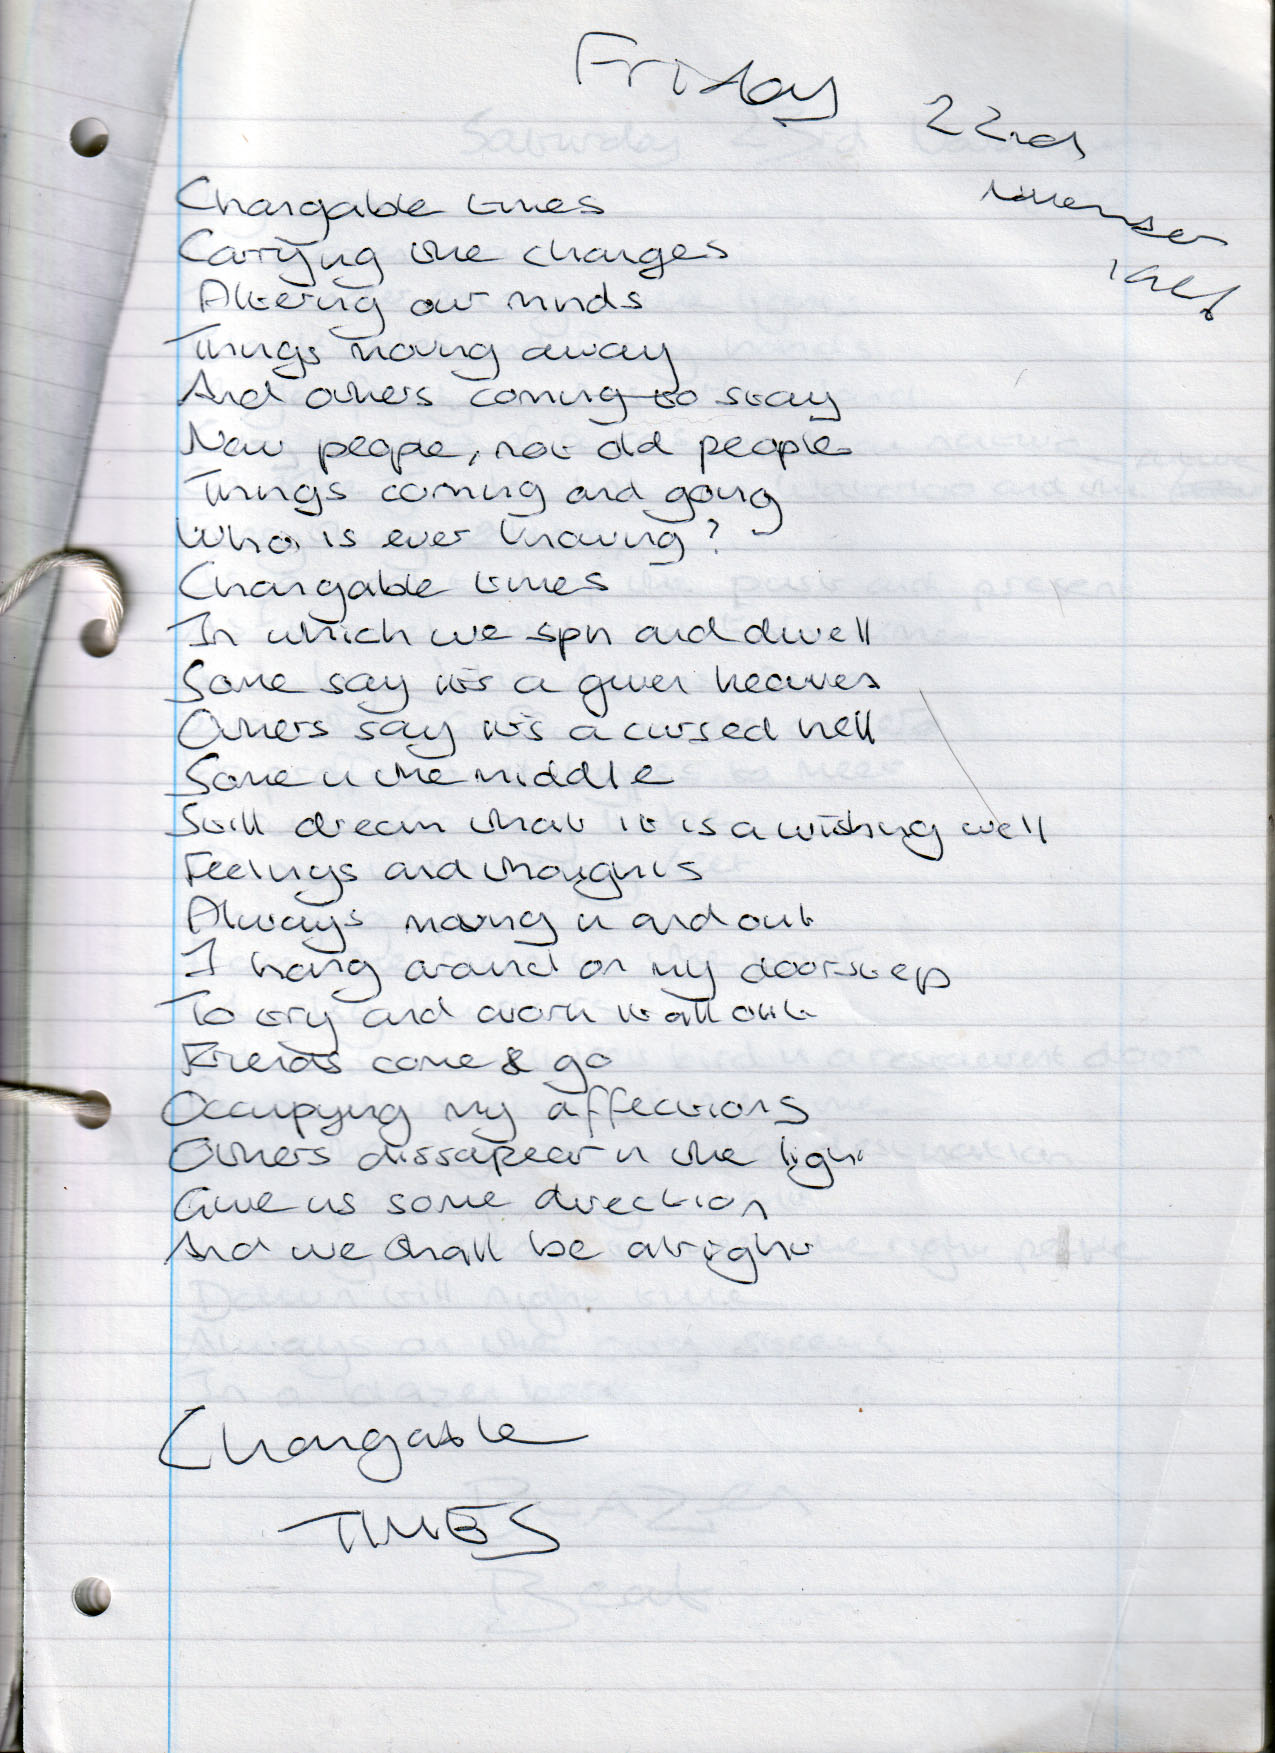 Friday
22nd
November
Changable times
Carrying the changes
Altering our minds
Things moving away
And others coming to stay
New people, not old people
Things coming and going
Who is ever knowing?
Changable times
In which we spin and dwell
Some say it's a given heaven
Others say it's a cursed hell
Some in the middle
Still dream that it is a wishing well
Feelings and thoughts
Always moving in and out
I hang around on my doorstep
To try and work it all out
Friends come & go
Occupying my affections
Others dissapear in the light
Give us some direction
And we shall be alright
Changable
TIMES